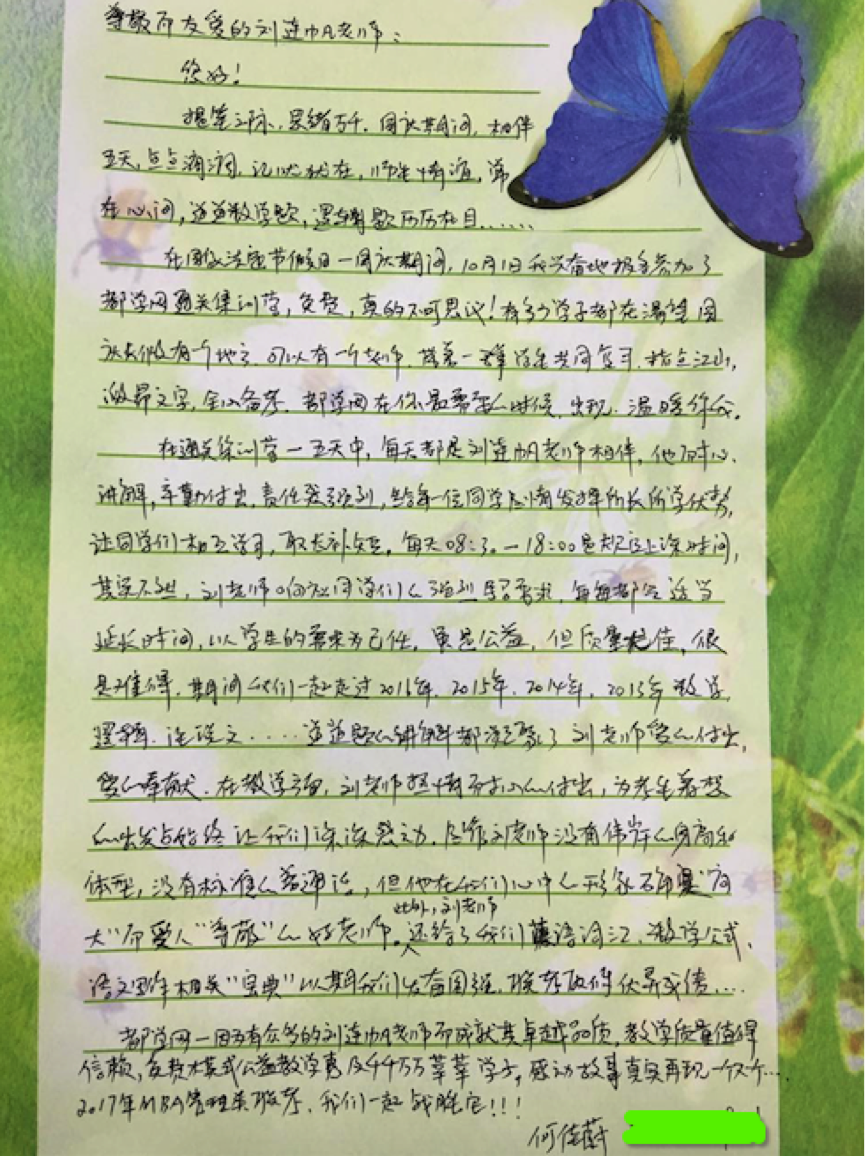 尊敬而友爱的刘连帆老师：
您好！
提笔之际，思绪万千，国庆期间，相伴
五天，点点滴滴，记忆犹在，师生情谊，常
在心间，道道数学题，逻辑题历历在目……
在国假法定节假日一国庆期间，10月1日我兴奋地报名参加了
都学网通关集训营，免费，真的不可思议！有多少学子都在渴望国
庆长假有一个地方，可以有一个老师，携着一群学生共同复习，指点江山，
激昂文字，全心备考，都学网在你最需要的时候，出现，温暖你我。
在通关集训营一五天中，每天都是刘连帆老师相伴，他耐心
讲解，辛勤付出，责任感强烈，给每一位同学尽情发挥所长所学优势，
让同学们相互学习，取长补短，每天08:30—18:00是规定上课时间，
其实不然，刘老师响应同学们的强烈学习需求，每每都会适当
延长时间，以学生的需求为己任，虽是公益，但质量超佳，很
是难得，期间我们一起走过2016年，2015年，2014年，2013年数学，
逻辑，论说文……道道题的讲解都凝聚了刘老师爱的付出，
爱的奉献，在教学方面，刘老师热情而耐心的付出，为考生着想
的出发点始终让我们深深感动，尽管刘老师没有伟岸的身高和
体型，没有标准的普通话，但他在我们心中的形象确是“高
大”而爱人“尊敬”的好老师。此外，刘老师还给了我们英语词汇，数学公式，
语文写作相关“宝典”以期我们发奋图强，联考取得优异成绩，…
都学网一因为有众多的刘连帆老师而成就其卓越品质，教学质量值得
信赖，免费模式公益教学惠及千千万万莘莘学子，感动故事真实再现一个个…
2017年MBA管理类联考，我们一起战胜它！！！
何佳蔚